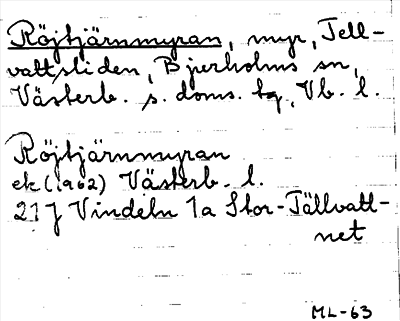 Röjtjärnmyran, myr, Tell-
vattsliden, Bjurholms sn,
Västerb. s. doms. tg., Vb. l.
Röjtjärnmyran
ek (1962) Västerb. l.
21 J Vindeln 1a Stor-Tällvatt-
net
ML-63